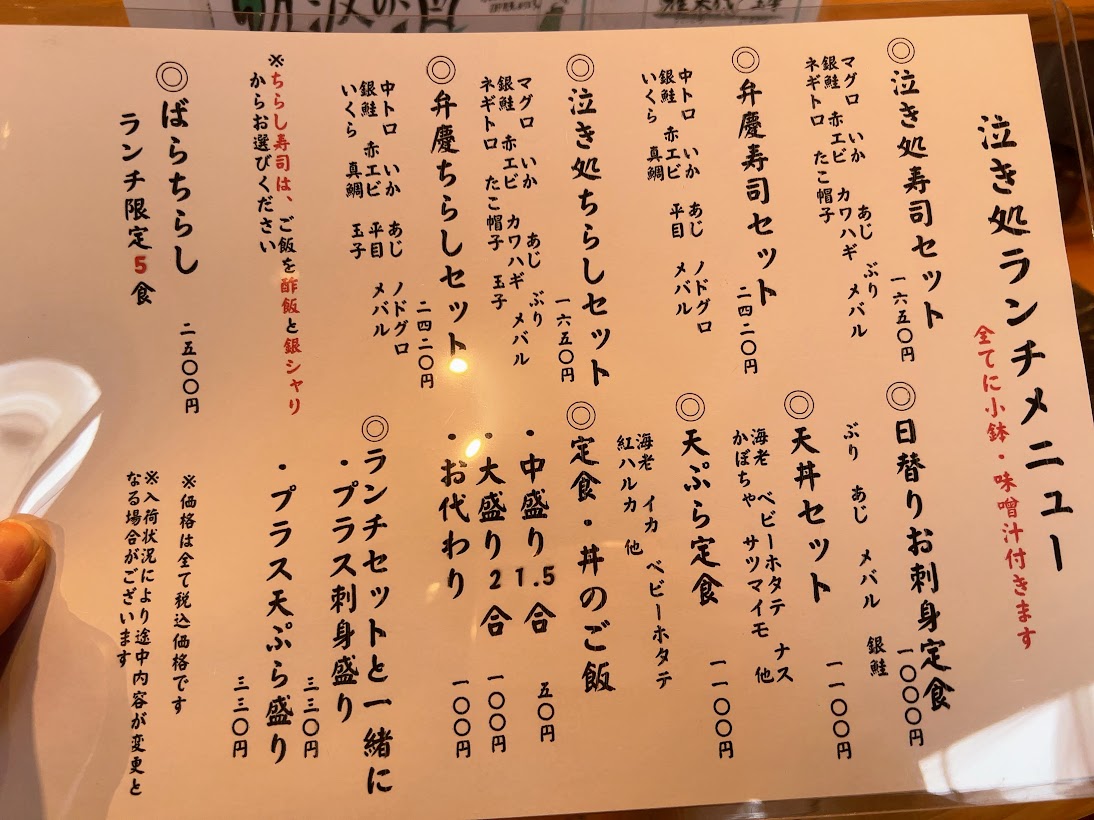 泣き処ランチメニュー
全てに小鉢・味噌汁付きます
◎泣き処寿司セット
一六五〇円
マグロ いか あじ ぶり
銀鮭 赤エビ カワハギ メバル
ネギトロ たこ帽子
◎弁慶寿司セット
二四二〇円
中トロ いか あじ ノドグロ
銀鮭 赤エビ 平目 メバル
いくら 真鯛
◎泣き処ちらしセット
一六五〇円
マグロ いか あじ ぶり
銀鮭 赤エビ カワハギ メバル
ネギトロ たこ帽子 玉子
◎弁慶ちらしセット
二四二〇円
中トロ いか あじ ノドグロ
銀鮭 赤エビ 平目 メバル
いくら 真鯛 玉子
※ちらし寿司は、ご飯を酢飯と銀シャリ
からお選びください
◎ばらちらし
二五〇〇円
ランチ限定5食
◎日替りお刺身定食
一〇〇〇円
ぶり あじ メバル 銀鮭
◎天丼セット
一一〇〇円
海老 ベビーホタテ ナス
かぼちゃ サツマイモ 他
◎天ぷら定食
一一〇〇円
海老 イカ ベビーホタテ
紅ハルカ 他
◎定食・丼のご飯
・中盛り1.5合 五〇円
・大盛り2合 一〇〇円
・お代わり 一〇〇円
◎ランチセットと一緒に
・プラス刺身盛り 三三〇円
・プラス天ぷら盛り 三三〇円
※価格は全て税込価格です
※入荷状況により途中内容が変更と
なる場合がございます